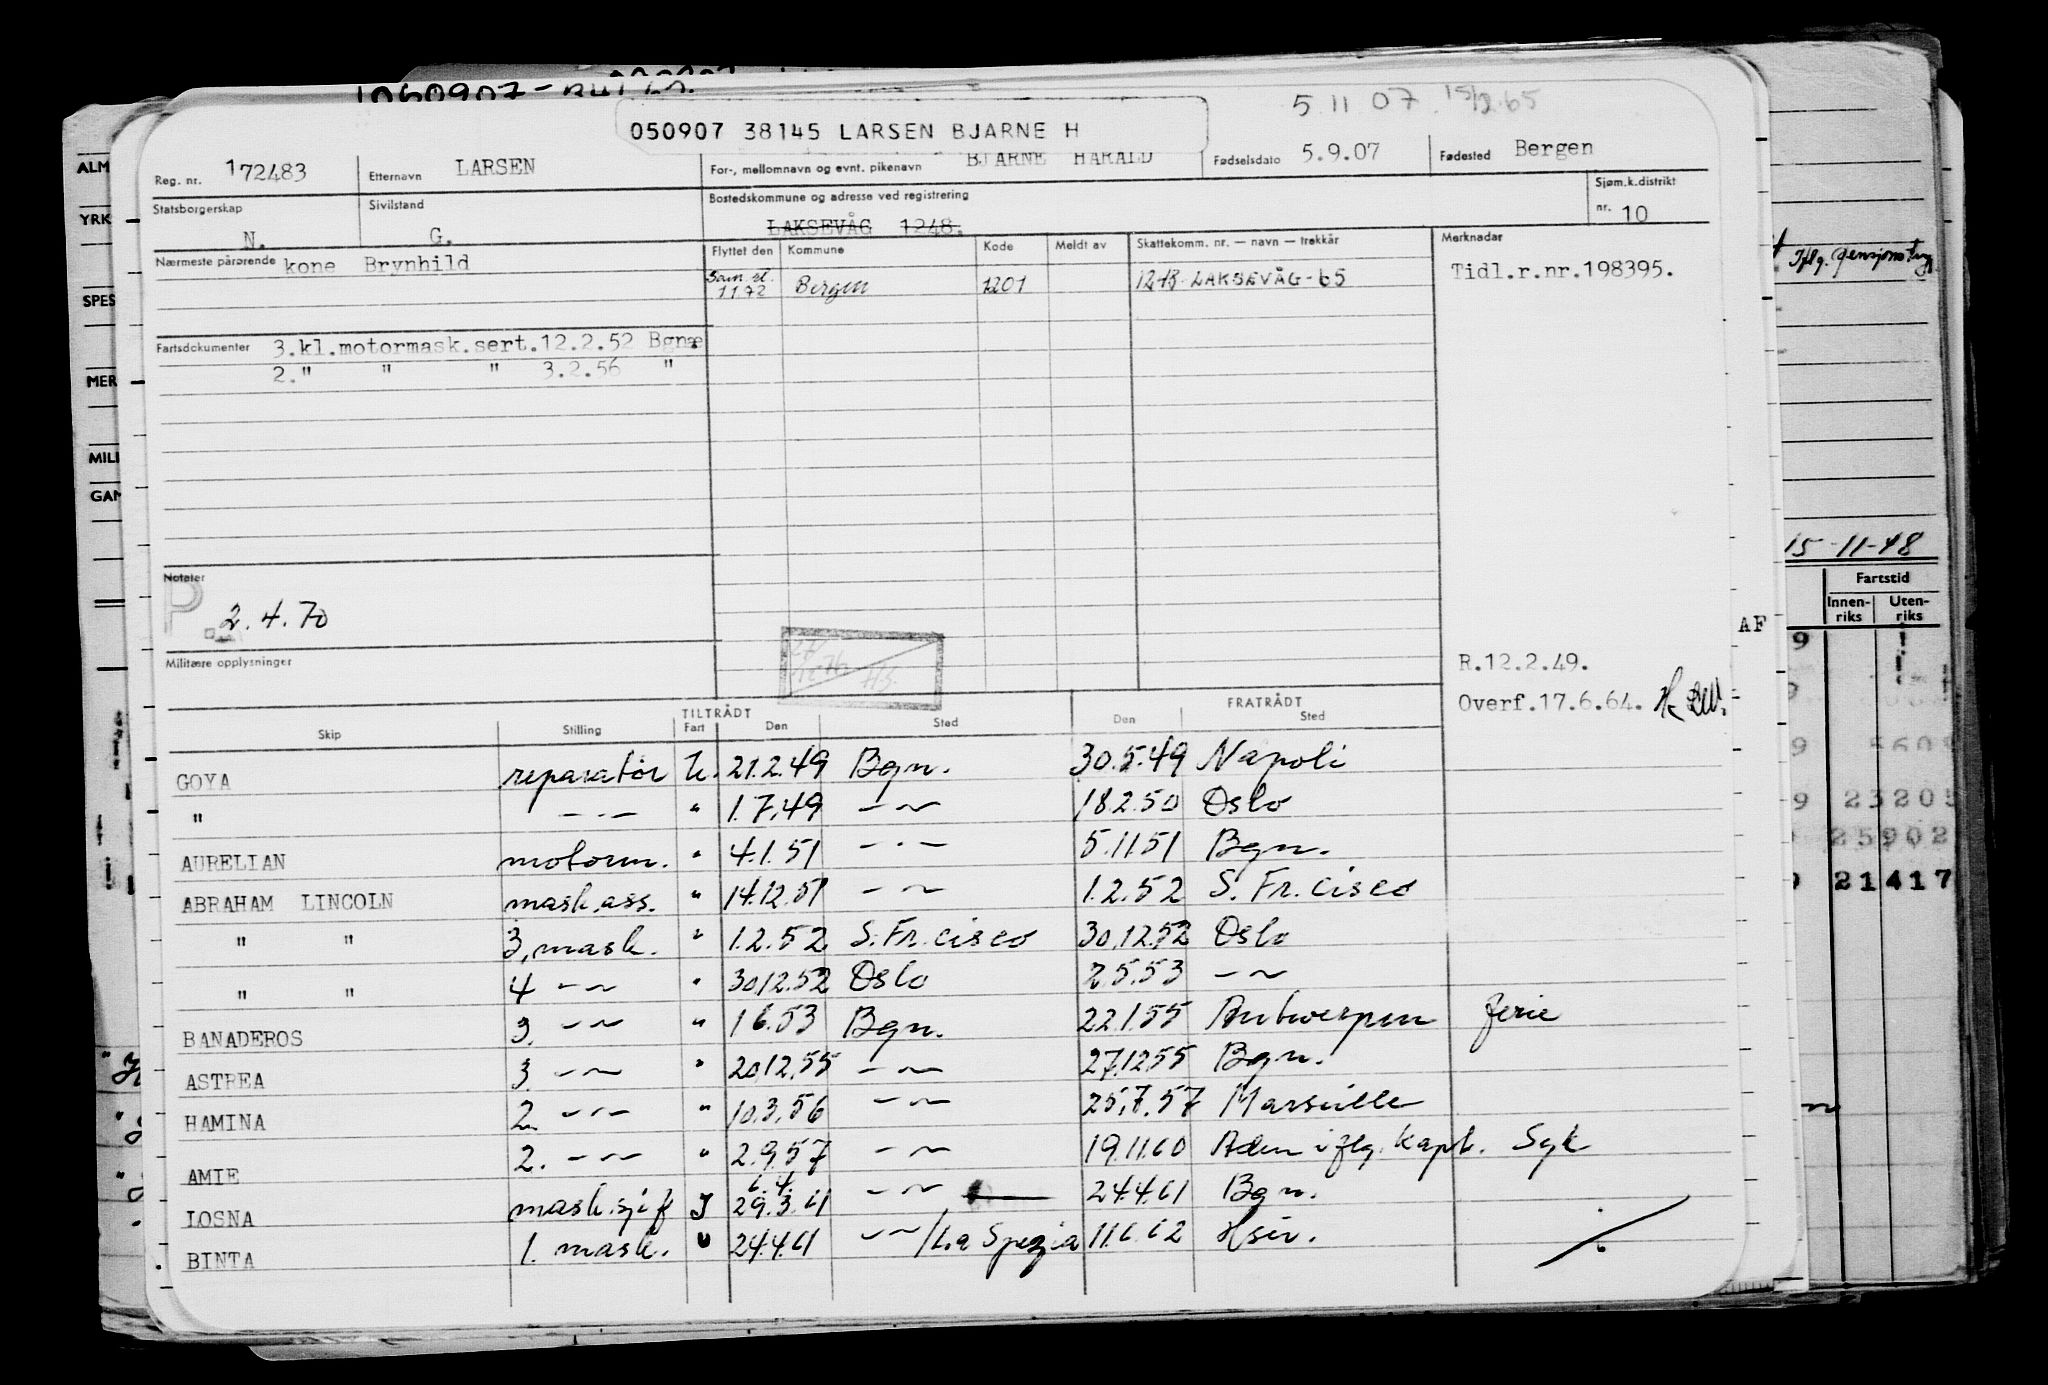 5 11 07 15/2.65
050907 38145 LARSEN BJARNE H
Reg. nr. 172483 Etternavn LARSEN For-, mellomnavn og evnt. pikenavn BJARNE HARALD Fødselsdato 5.9.07 Fødested Bergen
Statsborgerskap N. Sivilstand G. Bostedskommune og adresse ved registrering LAKSEVÅG 1248. Sjøm.k.distrikt nr. 10
Nærmeste pårørende kone Brynhild Flyttet den Kommune Kode Meldt av Skattekomm. nr. — navn — trekkår Merknader
Sam. sl. 1172 Bergen 1201 1248 LAKSEVÅG-65 Tidl.r.nr.198395.
Fartsdokumenter 3.kl.motormask.sert.12.2.52 Bgnæ
2." " " 3.2.56 "
Notater
P. 2.4.70
Militære opplysninger
R.12.2.49.
Overf.17.6.64.
TILTRÅDT FRATRÅDT
Skip Stilling Fart Den Sted Den Sted
GOYA reparatör U. 21.2.49 Bgn. 30.5.49 Napoli
" — · — " 1.7.49 — ~ 18.2.50 Oslo
AURELIAN motorm. " 4.1.51 — · — 5.11.51 Bgn.
ABRAHAM LINCOLN mask.ass. " 14.12.51 — ~ 1.2.52 S. Fr.cisco
" " 3. mask. " 1.2.52 S. Fr.cisco 30.12.52 Oslo
" " 4 — ~ " 30.12.52 Oslo 2.5.53 — ~
BANADEROS 3. — ~ " 1.6.53 Bgn. 22.1.55 Antwerpen ferie
ASTREA 3. — ~ " 20.12.55 — ~ 27.12.55 Bgn.
HAMINA 2. — ~ " 10.3.56 — ~ 25.7.57 Marseille
AMIE 2. — ~ " 2.9.57 — ~ 19.11.60 Aden iflg. kapt. Syk
6.4.
LOSNA mask.sjef J 29.3.61 — ~ 24.4.61 Bgn.
BINTA 1. mask. U 24.4.61 — ~ /La Spezia 11.6.62 Hsiv.
ALM
YRK
SPES
MER
MILI
GAN
Iflg. pensjonstryg
15-11-48
Fartstid
Innen-riks Uten-riks
AF
9
9 5609
9 23205
25902
21417